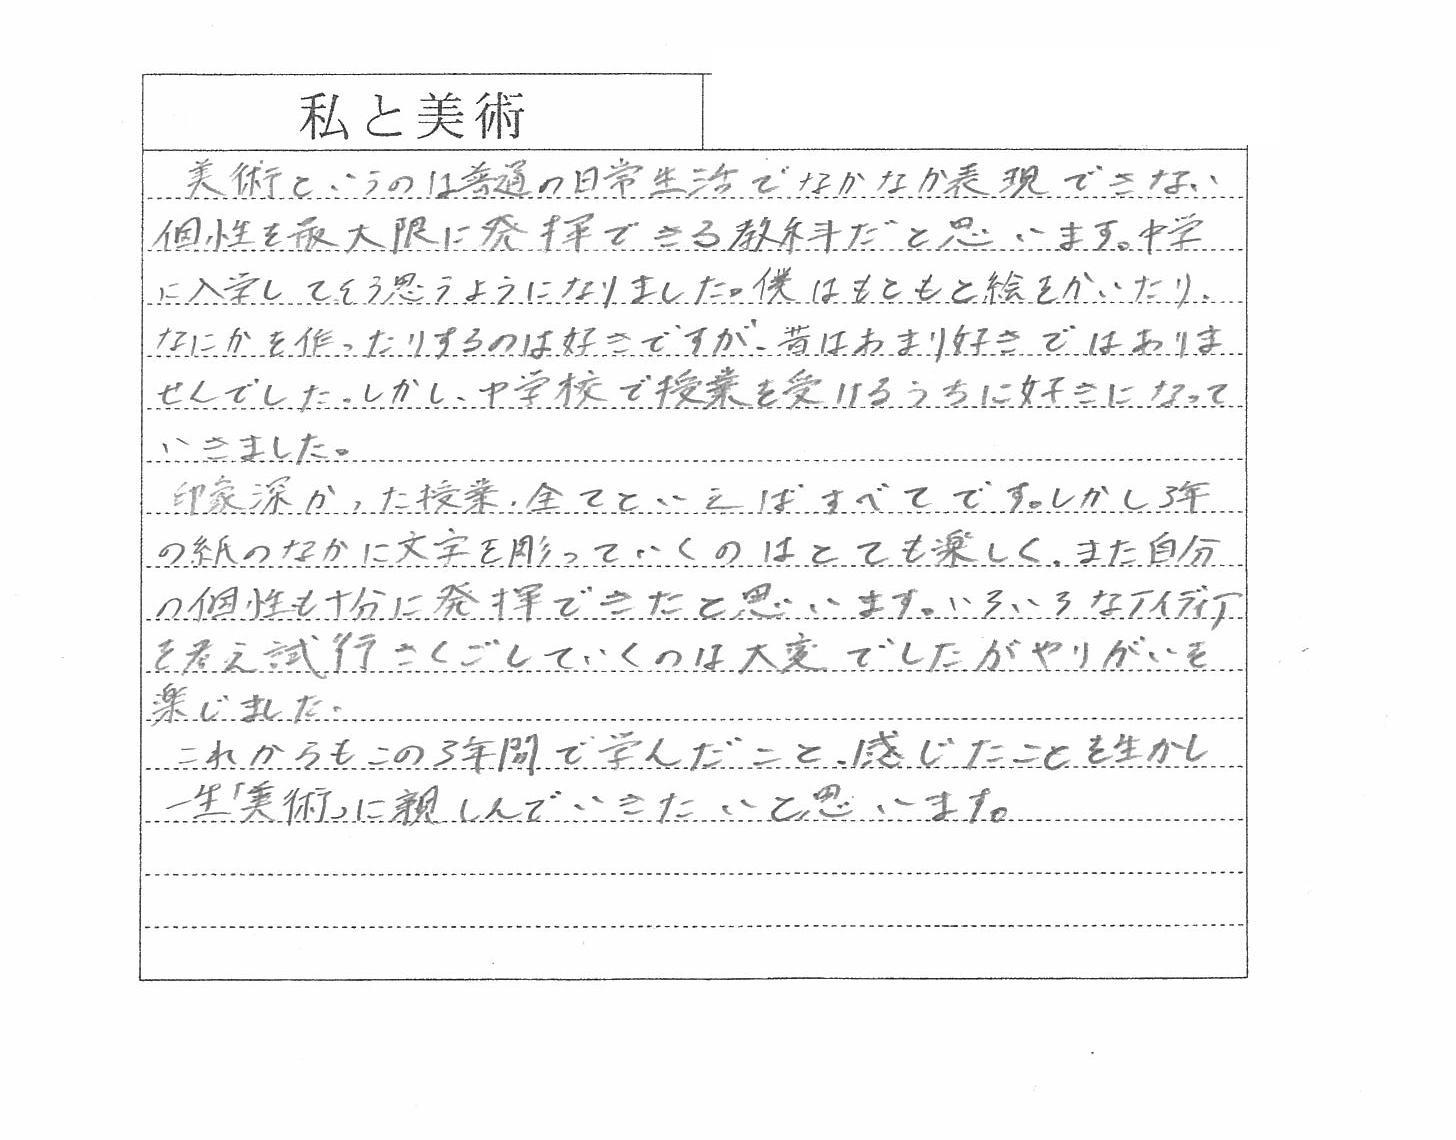 私と美術
美術というのは普通の日常生活でなかなか表現できない
個性を最大限に発揮できる教科だと思います。中学
に入学してそう思うようになりました。僕はもともと絵をかいたり、
なにかを作ったりするのは好きですが、昔はあまり好きではありま
せんでした。しかし、中学校で授業を受けるうちに好きになって
いきました。
印象深かった授業、全てといえばすべてです。しかし3年
の紙のなかに文字を彫っていくのはとても楽しく、また自分
の個性も十分に発揮できたと思います。いろいろなアイディア
を考え試行さくごしていくのは大変でしたがやりがいを
楽じました。
これからもこの3年間で学んだこと、感じたことを生かし
一生「美術」に親しんでいきたいと思います。